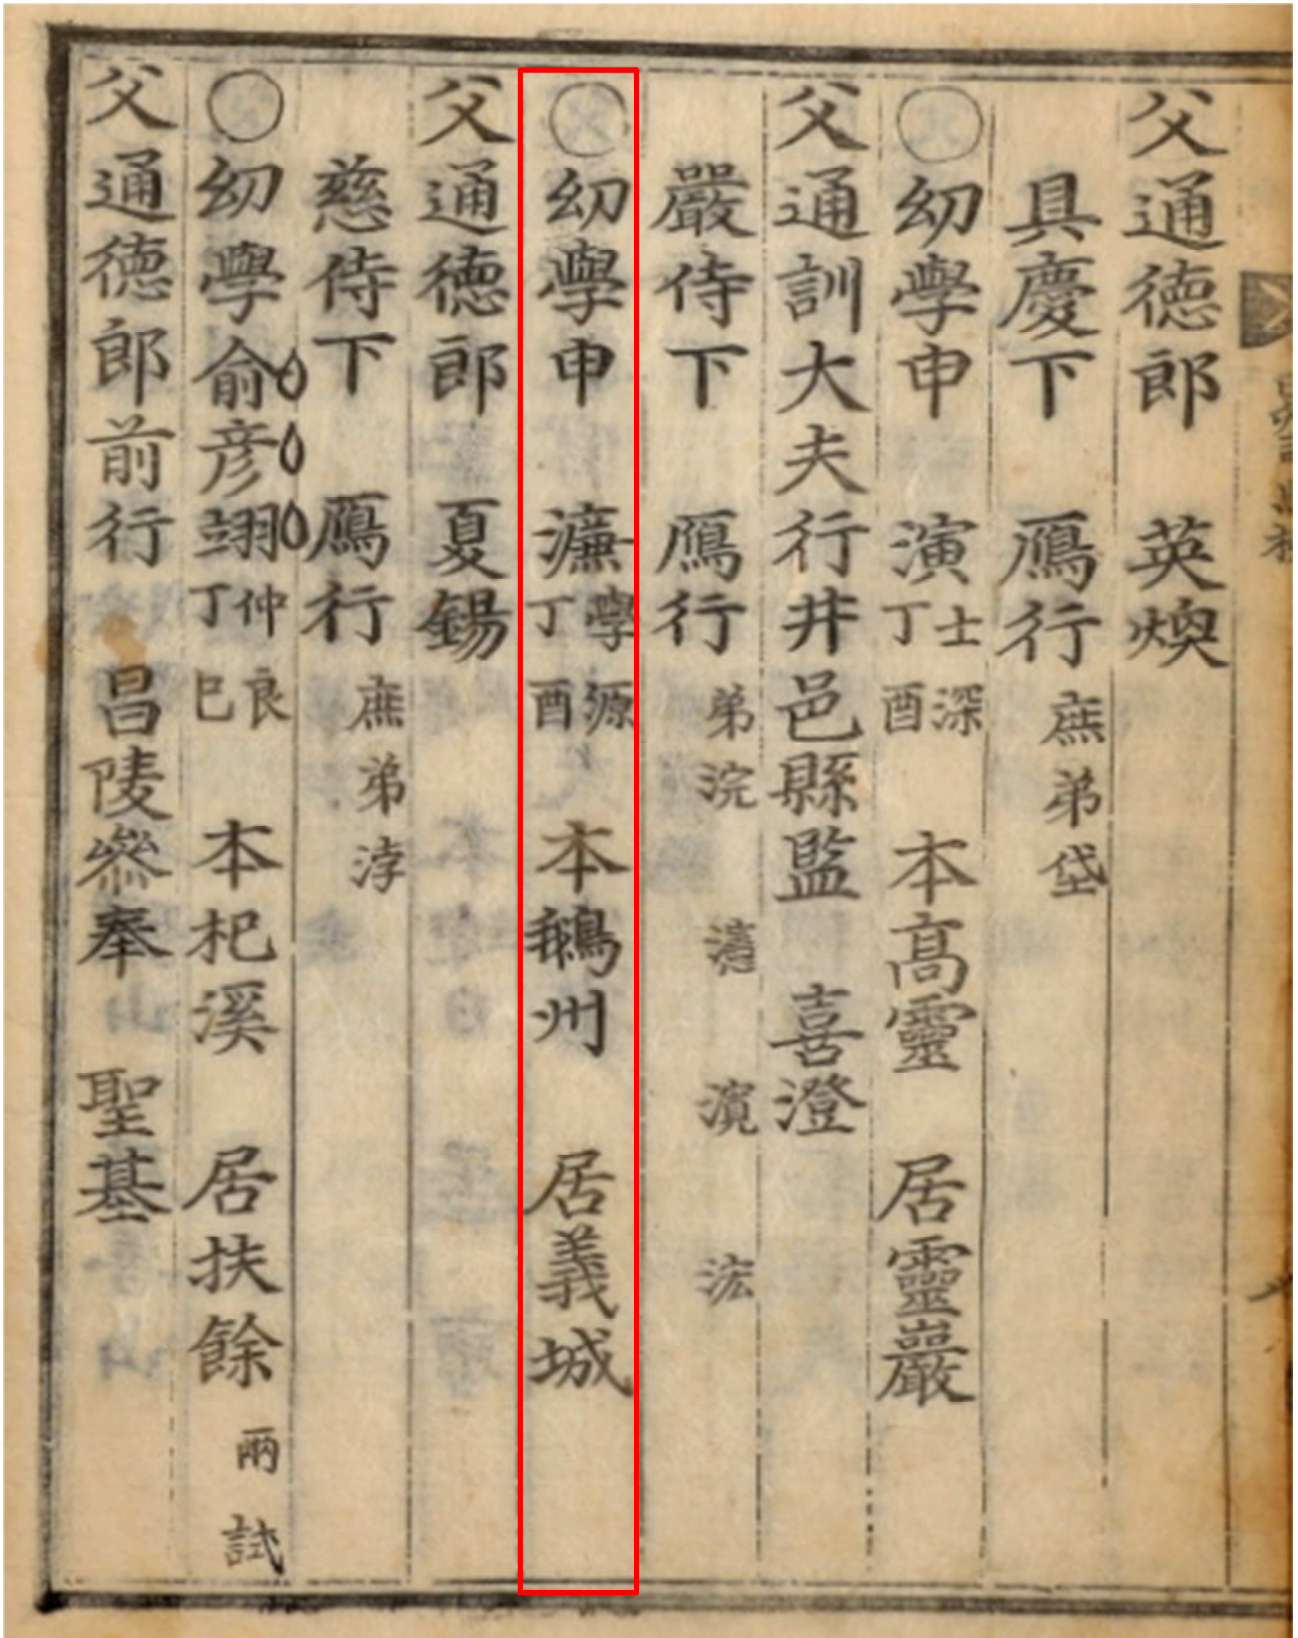 父通德郎 英煥
具慶下 鴈行 庶弟垈
○幼學申 演 士深 丁酉 本高靈 居靈巖
父通訓大夫行井邑縣監 喜澄
嚴侍下 鴈行 弟浣 濱 浤
○幼學申 濂 學源 丁酉 本鵝州 居義城
父通德郎 夏錫
慈侍下 鴈行 庶弟浡
○幼學俞彦翊 仲良 丁巳 本杞溪 居扶餘 兩試
父通德郎前行 昌陵參奉 聖基